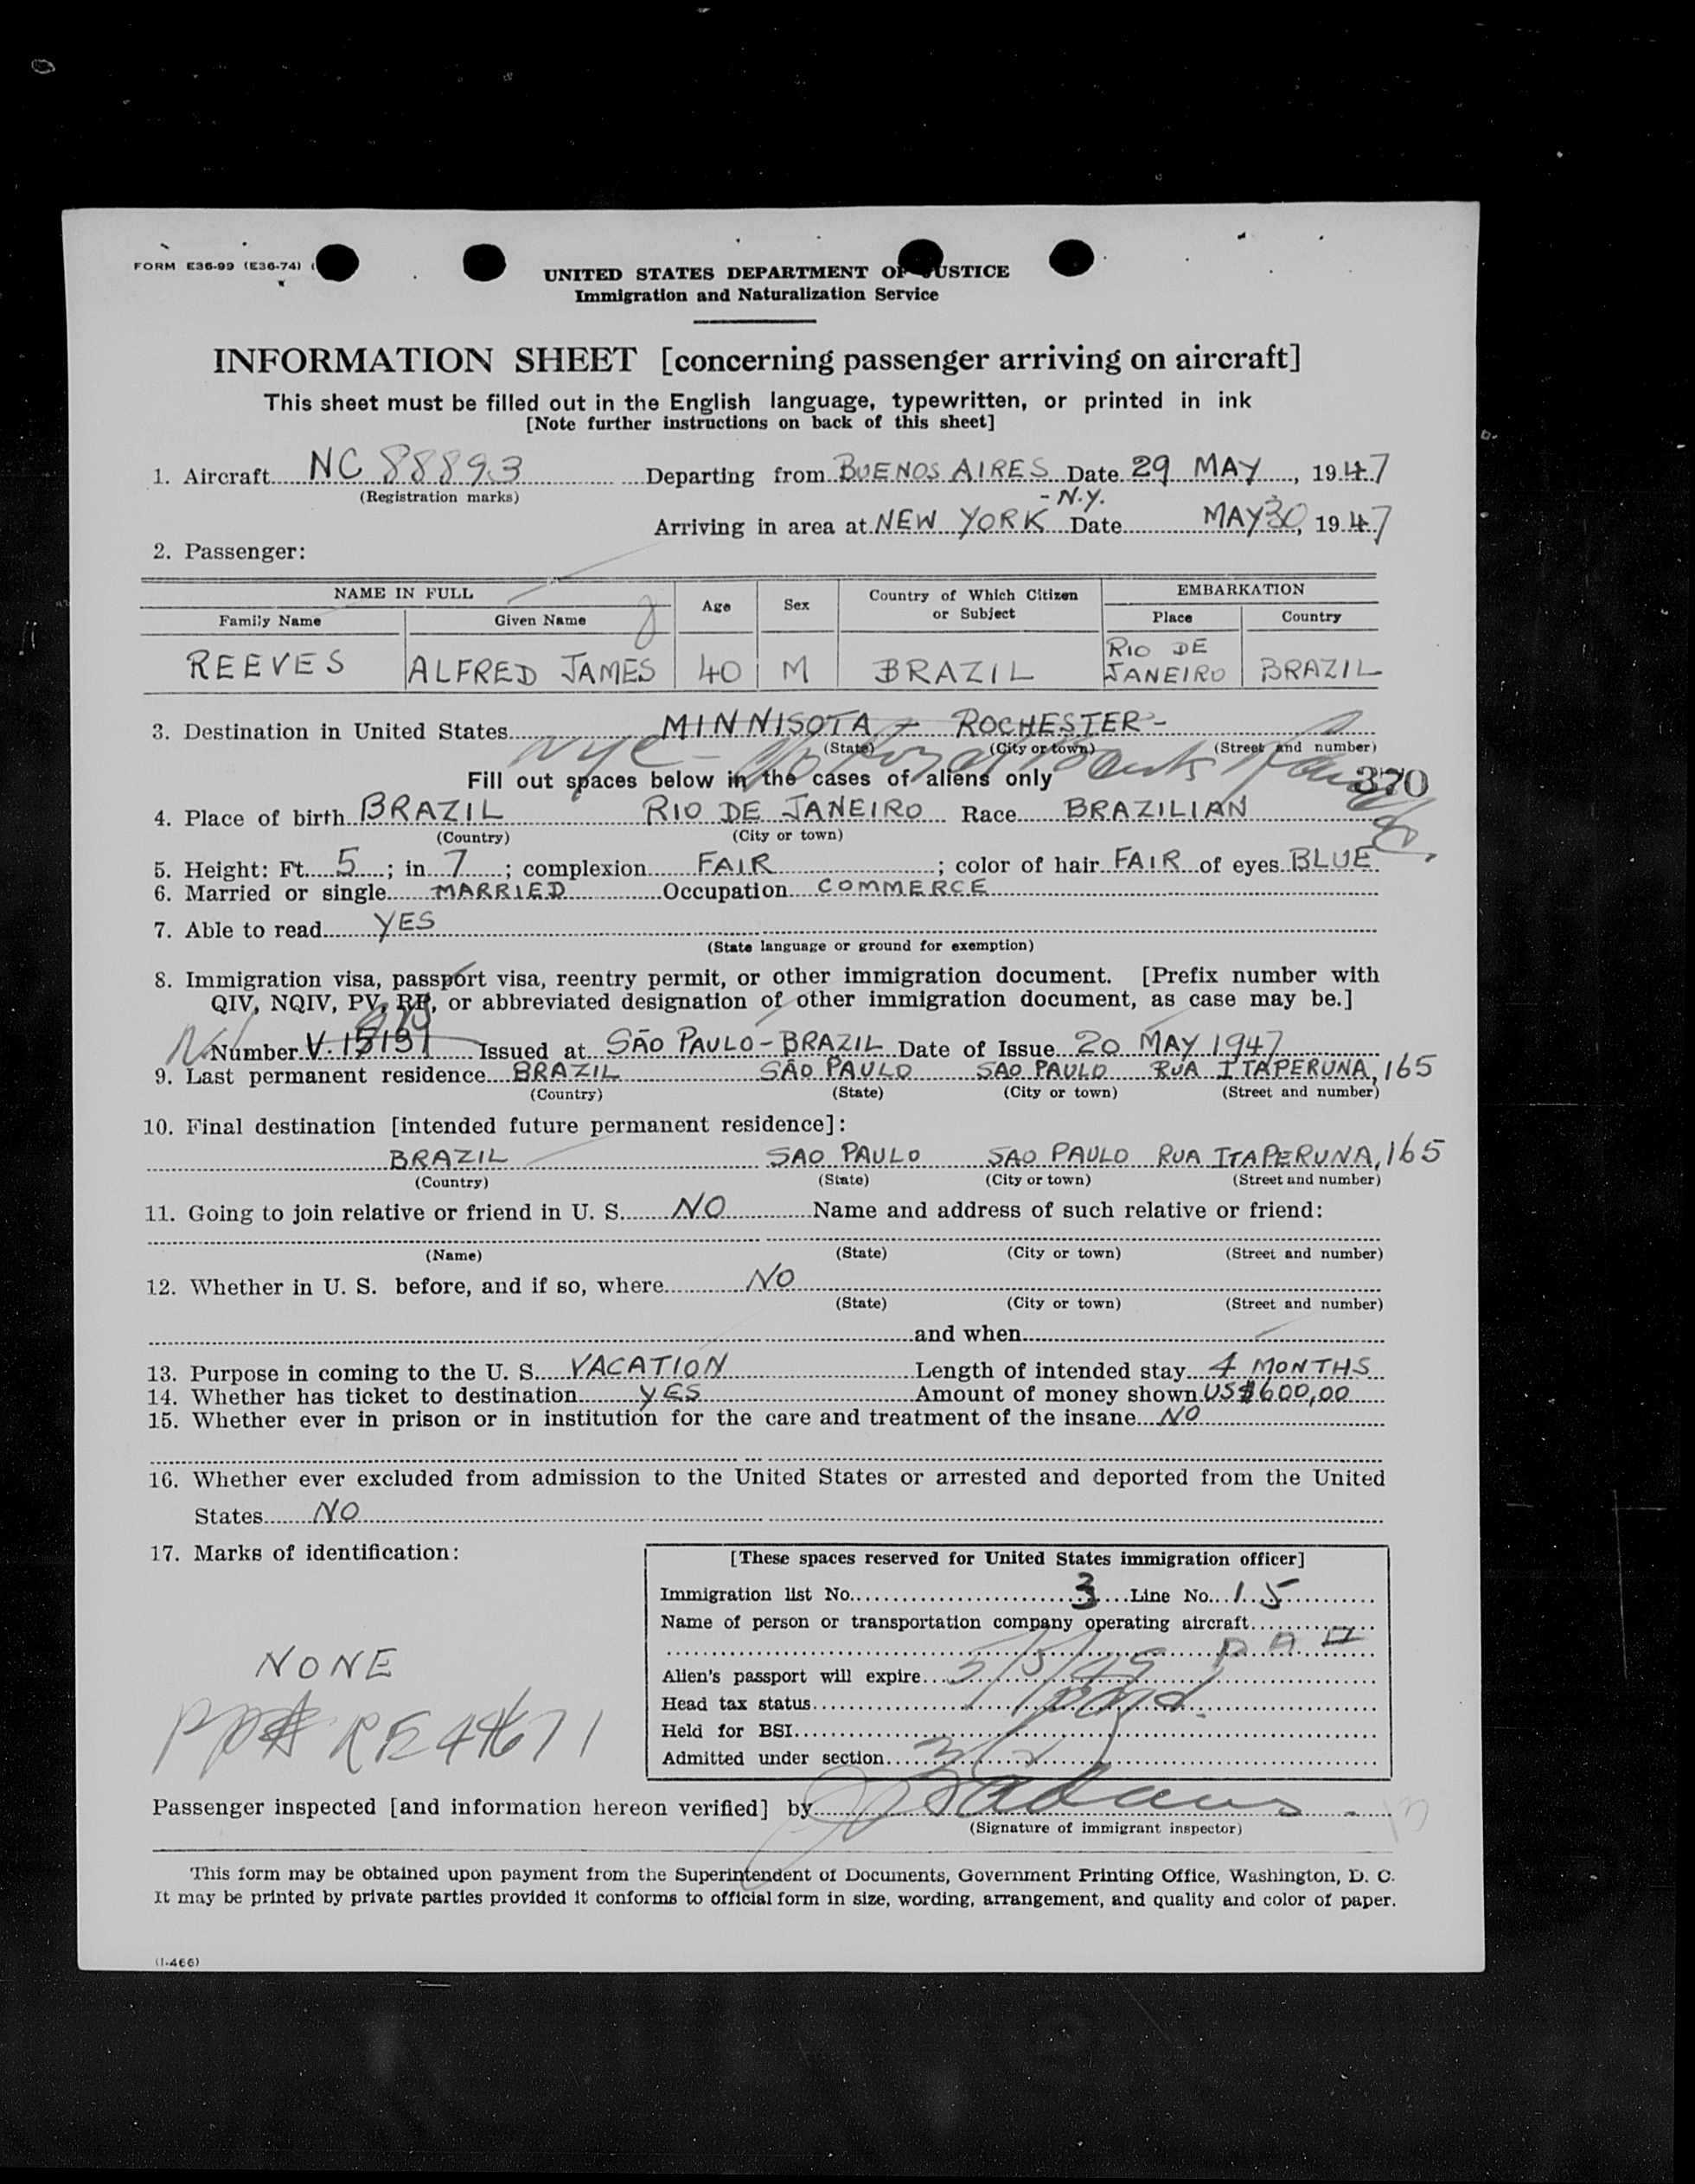 FORM E36-99 (E36-74)
UNITED STATES DEPARTMENT OF JUSTICE
Immigration and Naturalization Service
INFORMATION SHEET [concerning passenger arriving on aircraft]
This sheet must be filled out in the English language, typewritten, or printed in ink
[Note further instructions on back of this sheet]
1. Aircraft NC 88893 Departing from BUENOS AIRES Date 29 MAY, 1947
(Registration marks)
- N.Y.
Arriving in area at NEW YORK Date MAY 30, 1947
2. Passenger:
NAME IN FULL Age Sex Country of Which Citizen or Subject EMBARKATION
Family Name Given Name Place Country
REEVES ALFRED JAMES 40 M BRAZIL RIO DE JANEIRO BRAZIL
3. Destination in United States MINNISOTA - ROCHESTER -
(State) (City or town) (Street and number)
NYC -
Fill out spaces below in the cases of aliens only 370
4. Place of birth BRAZIL RIO DE JANEIRO Race BRAZILIAN
(Country) (City or town)
5. Height: Ft. 5; in 7; complexion FAIR; color of hair FAIR of eyes BLUE
6. Married or single MARRIED Occupation COMMERCE
7. Able to read YES
(State language or ground for exemption)
8. Immigration visa, passport visa, reentry permit, or other immigration document. [Prefix number with
QIV, NQIV, PV, RP, or abbreviated designation of other immigration document, as case may be.]
Number V. 15131 Issued at SÃO PAULO - BRAZIL Date of Issue 20 MAY 1947
9. Last permanent residence BRAZIL SÃO PAULO SAO PAULO RUA ITAPERUNA, 165
(Country) (State) (City or town) (Street and number)
10. Final destination [intended future permanent residence]:
BRAZIL SAO PAULO SAO PAULO RUA ITAPERUNA, 165
(Country) (State) (City or town) (Street and number)
11. Going to join relative or friend in U. S. NO Name and address of such relative or friend:
(Name) (State) (City or town) (Street and number)
12. Whether in U. S. before, and if so, where NO
(State) (City or town) (Street and number)
and when
13. Purpose in coming to the U. S. VACATION Length of intended stay 4 MONTHS
14. Whether has ticket to destination YES Amount of money shown US$600,00
15. Whether ever in prison or in institution for the care and treatment of the insane NO
16. Whether ever excluded from admission to the United States or arrested and deported from the United
States NO
17. Marks of identification:
NONE
PP# RE 44671
[These spaces reserved for United States immigration officer]
Immigration list No. 3 Line No. 15
Name of person or transportation company operating aircraft
P A A
Alien's passport will expire 5/5/49
Head tax status
Held for BSI
Admitted under section 3(2)
Passenger inspected [and information hereon verified] by
(Signature of immigrant inspector)
This form may be obtained upon payment from the Superintendent of Documents, Government Printing Office, Washington, D. C.
It may be printed by private parties provided it conforms to official form in size, wording, arrangement, and quality and color of paper.
(I-466)